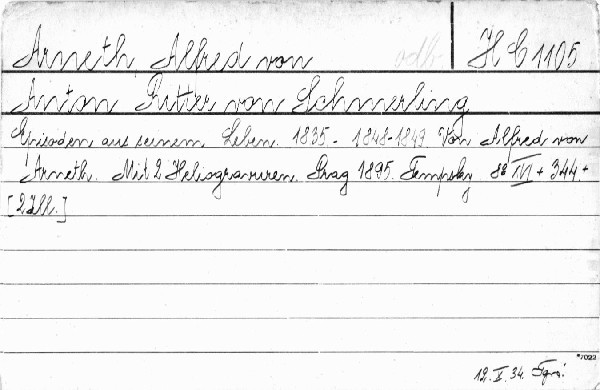 Arneth, Alfred von odb. H C 1105
Anton Ritter von Schmerling
Episoden aus seinem Leben. 1835 - 1848-1849 Von Alfred von
Arneth. Mit 2 Heliogravuren. Prag 1895. Tempsky 8° IV + 344 +
[2 Ill.]
*7022
12. X. 34.